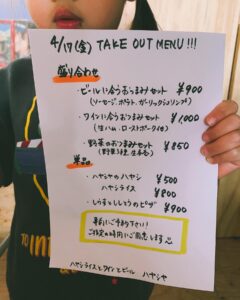 4/17(金) TAKE OUT MENU!!!
盛り合わせ
・ビールに合うおつまみセット ¥900
(ソーセージ、ポテト、ガーリックシュリンプ)
・ワインに合うおつまみセット ¥1000
(生ハム、ローストポークetc)
・野菜のおつまみセット ¥850
単品
・ハヤシヤのハヤシ ¥500
ハヤシライス ¥800
・しらすとししとうのピザ ¥900
事前にご予約下さい!
ご指定の時間にご用意します
ハヤシライスとワインとビール ハヤシヤ